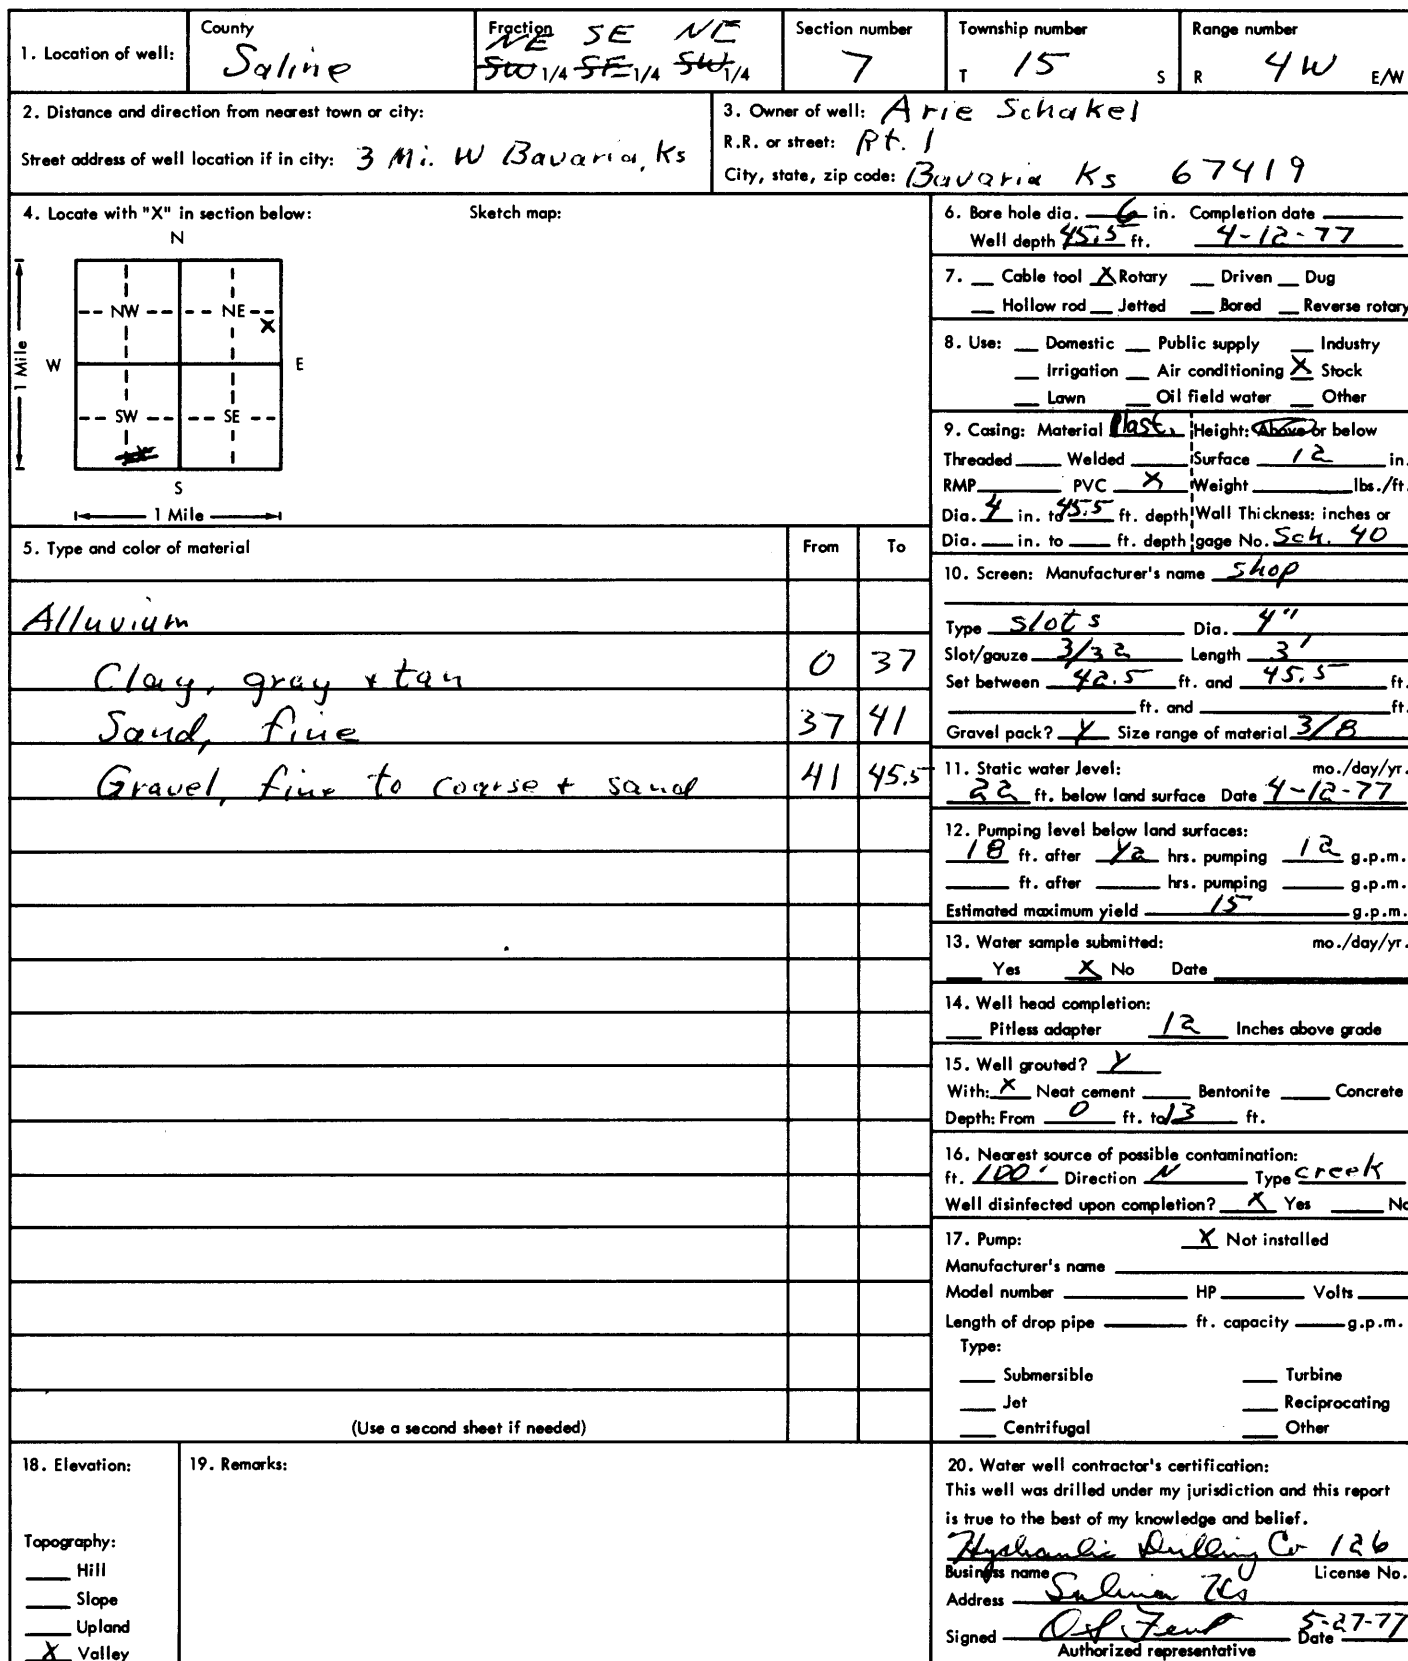 1. Location of well: County Saline Fraction NE SE NE Section number 7 Township number T 15 S Range number R 4W E/W
SW 1/4 SE 1/4 SW 1/4
2. Distance and direction from nearest town or city:
Street address of well location if in city: 3 Mi. W Bavaria, Ks
3. Owner of well: Arie Schakel
R.R. or street: Rt. 1
City, state, zip code: Bavaria Ks 67419
4. Locate with "X" in section below: Sketch map:
N
NW NE
X
W E
1 Mile
SW SE
S
1 Mile
5. Type and color of material From To
Alluvium
Clay, gray + tan 0 37
Sand, fine 37 41
Gravel, fine to coarse + sand 41 45.5
(Use a second sheet if needed)
6. Bore hole dia. 6 in. Completion date
Well depth 45.5 ft. 4-12-77
7. Cable tool X Rotary Driven Dug
Hollow rod Jetted Bored Reverse rotary
8. Use: Domestic Public supply Industry
Irrigation Air conditioning X Stock
Lawn Oil field water Other
9. Casing: Material Plast. Height: Above or below
Threaded Welded Surface 12 in.
RMP PVC X Weight lbs./ft.
Dia. 4 in. to 45.5 ft. depth Wall Thickness: inches or
Dia. in. to ft. depth gage No. Sch. 40
10. Screen: Manufacturer's name shop
Type slots Dia. 4"
Slot/gauze 3/32 Length 3'
Set between 42.5 ft. and 45.5 ft.
ft. and ft.
Gravel pack? Y Size range of material 3/8
11. Static water level: mo./day/yr.
22 ft. below land surface Date 4-12-77
12. Pumping level below land surfaces:
18 ft. after 1/2 hrs. pumping 12 g.p.m.
ft. after hrs. pumping g.p.m.
Estimated maximum yield 15 g.p.m.
13. Water sample submitted: mo./day/yr.
Yes X No Date
14. Well head completion:
Pitless adapter 12 Inches above grade
15. Well grouted? Y
With: X Neat cement Bentonite Concrete
Depth: From 0 ft. to 13 ft.
16. Nearest source of possible contamination:
ft. 100' Direction N Type creek
Well disinfected upon completion? X Yes No
17. Pump: X Not installed
Manufacturer's name
Model number HP Volts
Length of drop pipe ft. capacity g.p.m.
Type:
Submersible Turbine
Jet Reciprocating
Centrifugal Other
18. Elevation:
Topography:
Hill
Slope
Upland
X Valley
19. Remarks:
20. Water well contractor's certification:
This well was drilled under my jurisdiction and this report
is true to the best of my knowledge and belief.
Hydraulic Drilling Co 126
Business name License No.
Address Salina Ks
Signed Fent Date 5-27-77
Authorized representative